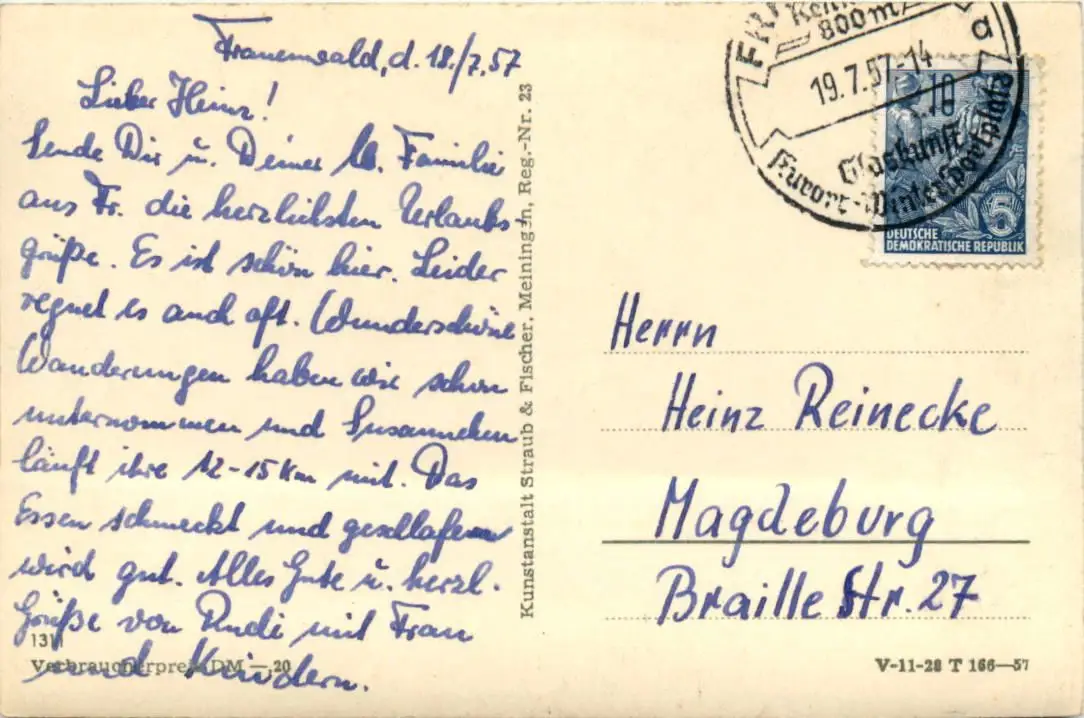 Frauenwald, d. 18./7.57
Lieber Heinz!
Sende Dir u. Deiner lb. Familie
aus Fr. die herzlichsten Urlaubs-
grüße. Es ist schön hier. Leider
regnet es auch oft. Wunderschöne
Wanderungen haben wir schon
unternommen und Susannchen
läuft ihre 12-15 Km mit. Das
Essen schmeckt und geschlafen
wird gut. Alles Gute u. herzl.
Grüße von Rudi mit Frau
und Kindern.
131
Verbraucherpreis DM —,20
Kunstanstalt Straub & Fischer, Meiningen, Reg.-Nr. 23
800m
a
19.7.57-14
Glaskunst
Kurort-Wintersportplatz
10
5
DEUTSCHE
DEMOKRATISCHE REPUBLIK
Herrn
Heinz Reinecke
Magdeburg
Braille Str. 27
V-11-28 T 166—57